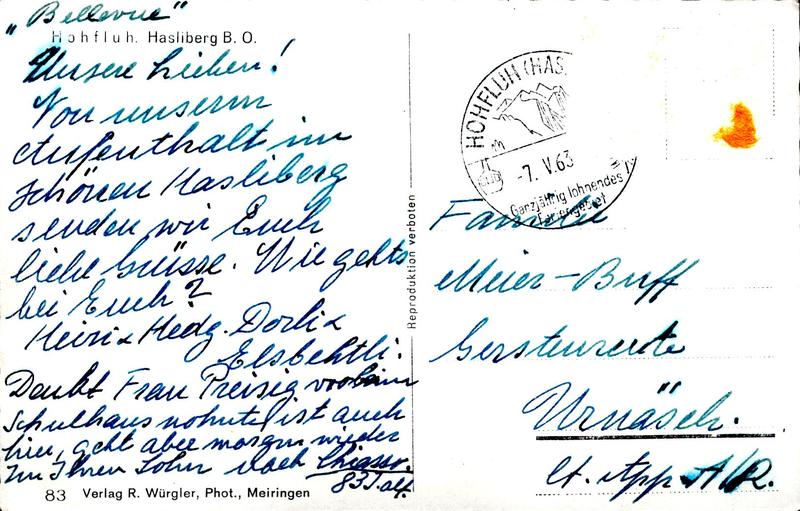 „Bellevue"
Hohfluh. Hasliberg B.O.
Unsere Lieben!
Von unserm
Aufenthalt im
schönen Hasliberg
senden wir Euch
liebe Grüsse. Wie gehts
bei Euch?
Heiri & Hedy. Dorli &
Elsbethli.
Denkt Frau Preisig
Schulhaus wohnte, ist auch
hier, geht aber morgen wieder
zu Ihrem Sohn nach Chiasso.
83 J. alt.
83 Verlag R. Würgler, Phot., Meiringen
Reproduktion verboten
HOHFLUH (HAS
-7. V. 63
Ganzjährig lohnendes
Feriengebiet
Familie
Meier-Buff
Gerstenrüte
Urnäsch.
Ct. App A/R.